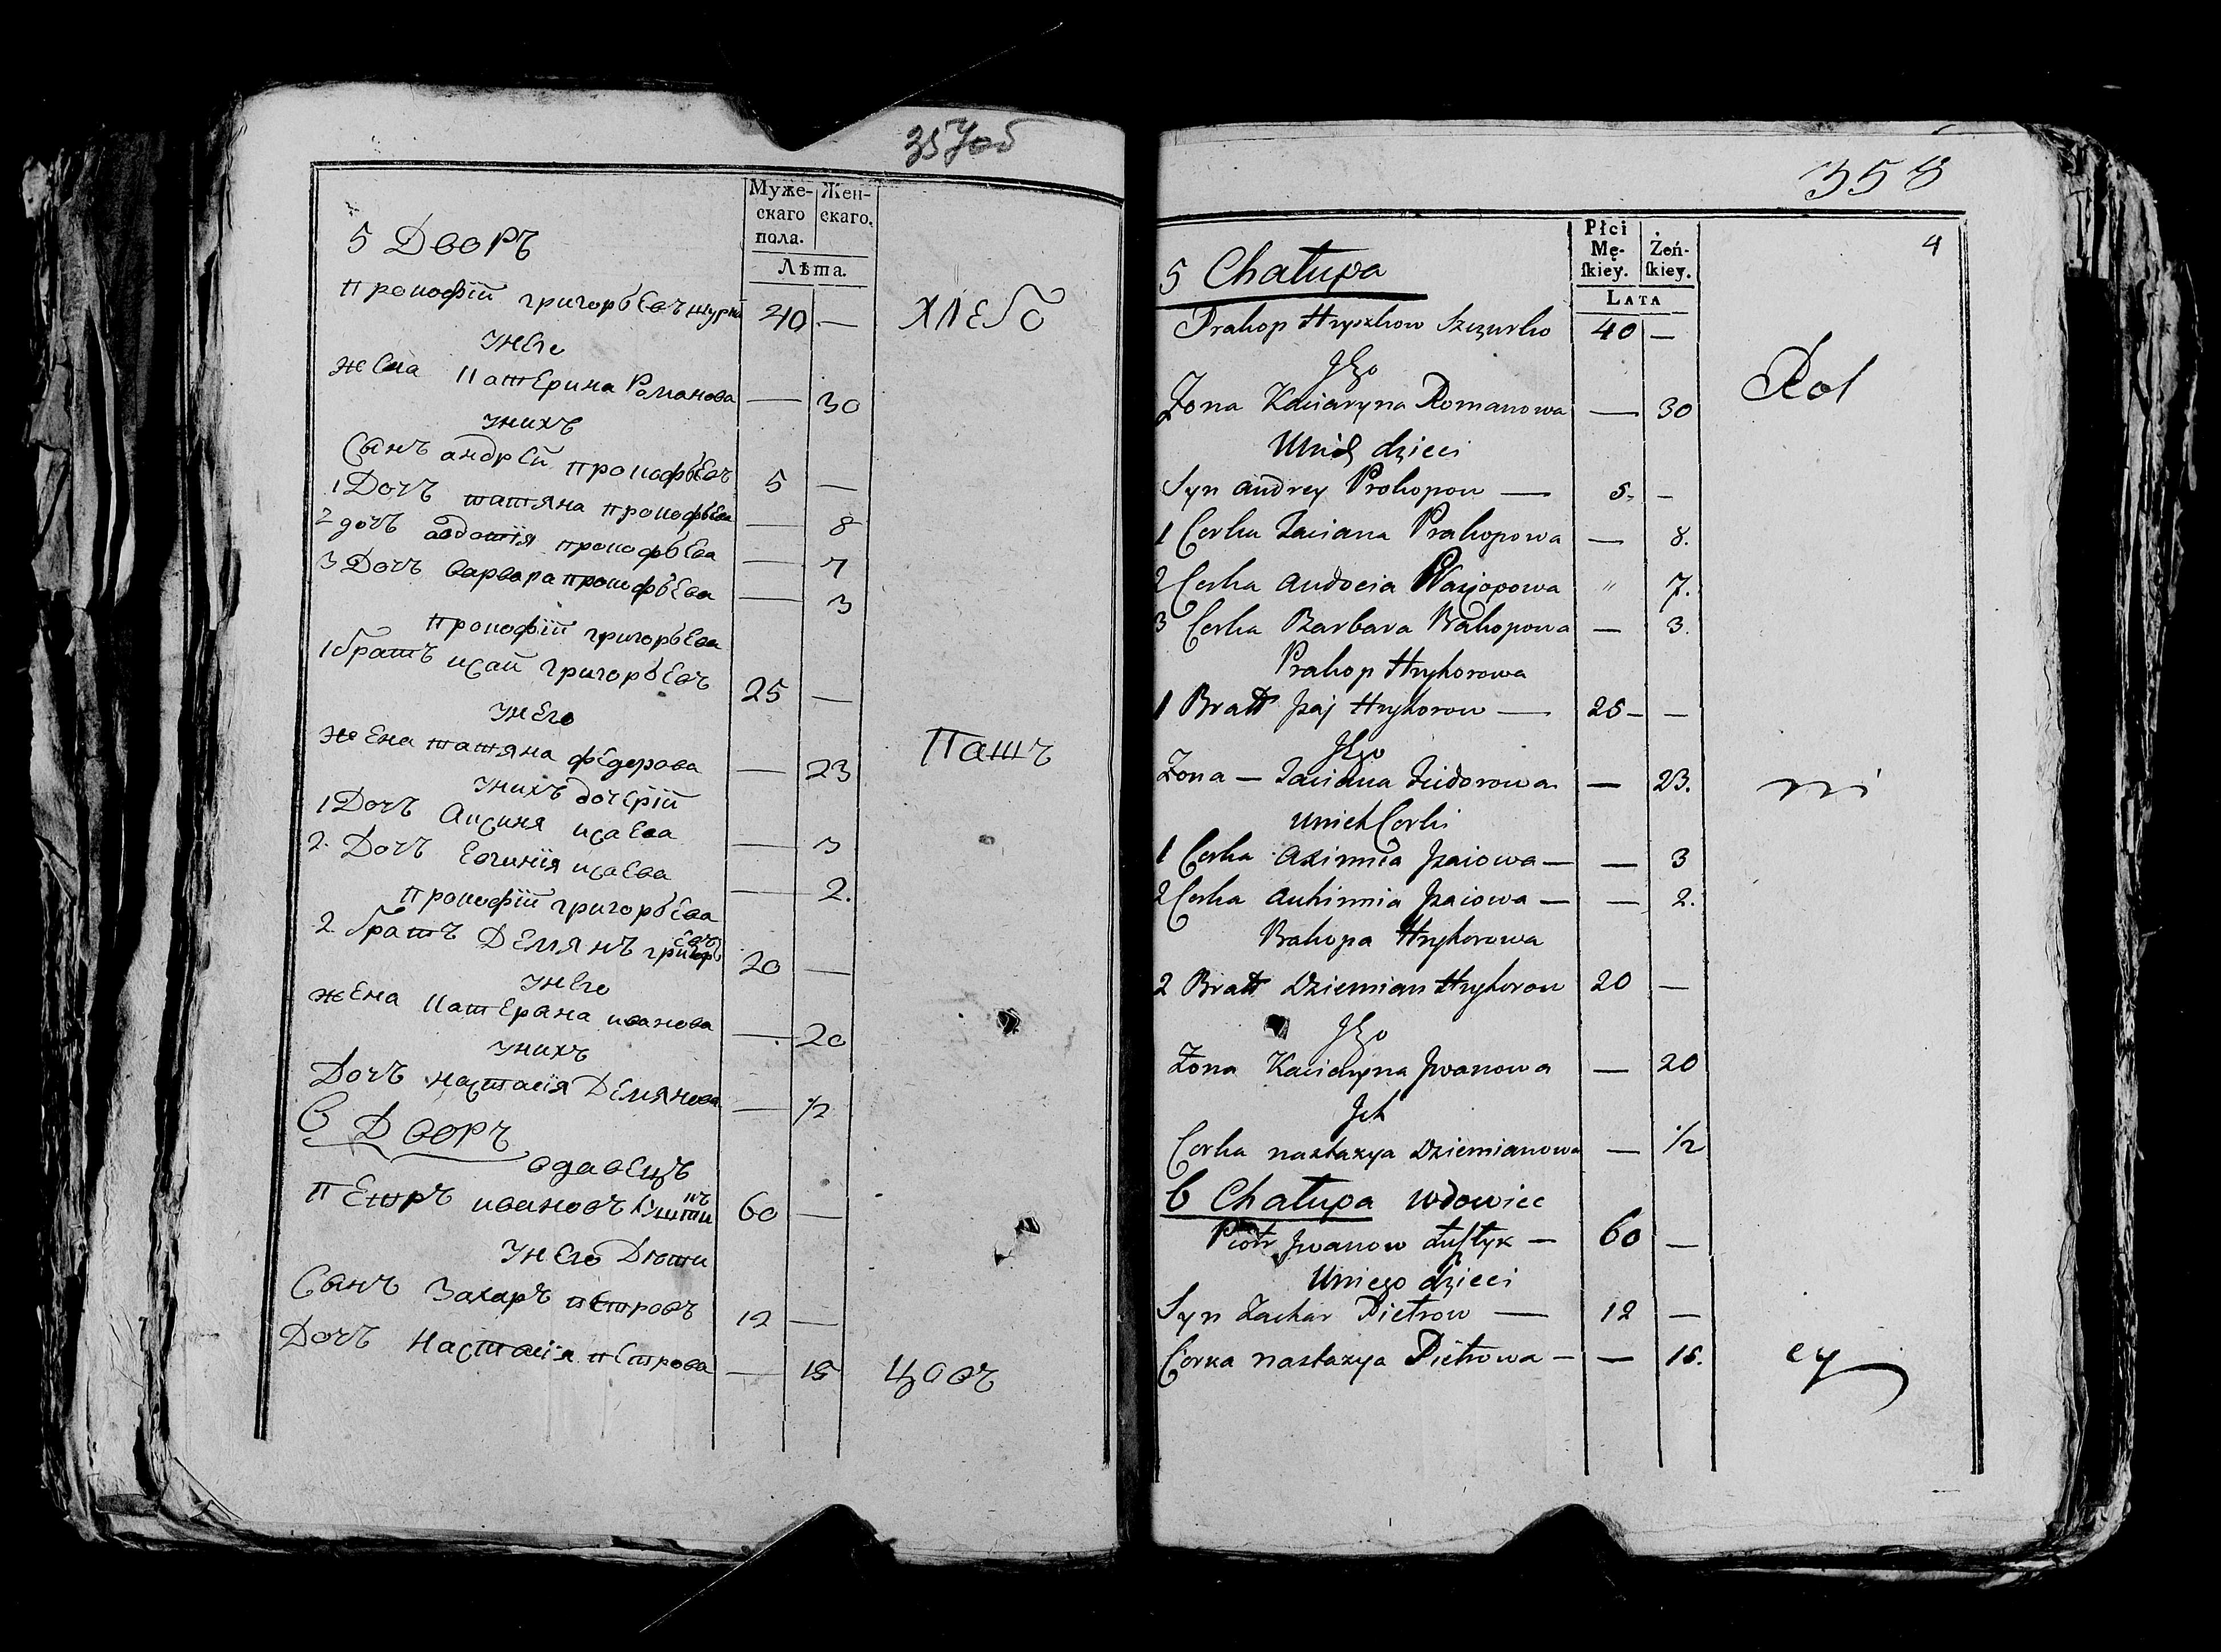 357об
Муже-
скаго
пола.
Жен-
скаго.
Лѣта.
5 Дворъ
Прокофій григорьевъ щурко 40 — хлебо
у него
жена Катерина Романова — 30
у нихъ
Сынъ андрей прокофьевъ 5 —
1 Дочъ татяна прокофьева — 8
2 дочъ авдотія прокофьева — 7
3 Дочъ варвара прокофьева — 3
Прокофій григорьева
1 братъ исай григорьевъ 25 —
у него
жена татяна федорова — 23 Пашъ
у нихъ дочерій
1 Дочъ Аксиня исаева — 3
2. Дочъ Евгинія исаева — 2.
Прокофій григорьева
2 братъ Демянъ григорьевъ 20 —
у него
жена Катерина иванова — 20
у нихъ
Дочъ настасія Демянова — 1/2
6 Дворъ
вдавецъ
Петръ ивановъ 60 —
у него Дѣти
Сынъ Захаръ петровъ 12 —
Дочъ Настасія петрова — 15 цовъ
358
4
Płci
Mę-
ſkiey.
Żeń-
ſkiey.
LATA
5 Chałupa
Prakop Hryszkow Szczurko 40 —
Jego
Żona Kaciaryna Romanowa — 30 Rol
Unich dzieci
Syn andrey Prokopow — 5. —
1 Corka Taciana Prakopowa — 8.
2 Corka audocia " 7.
3 Corka Barbara Prakopowa — 3.
Prakop Hryhorowa
1 Bratt Jzaj Hryhorow — 25 — —
Jego
Żona — Taciana — 23. ni
unich Corki
1 Corka Axinnia Jzaiowa — — 3
2 Corka Auhinnia Jzaiowa — — 2.
Prakopa Hryhorowa
2 Bratt Dziemian Hryhorow 20 —
Jego
Żona Kaciaryna Jwanowa — 20
Jch
Corka nastazya Dziemianowa — 1/2
6 Chałupa wdowiec
Piotr Jwanow Łustyk — 60 —
Uniego dzieci
Syn Zachar Pietrow — 12 —
Corka nastazya Pietrowa — — 15. cy